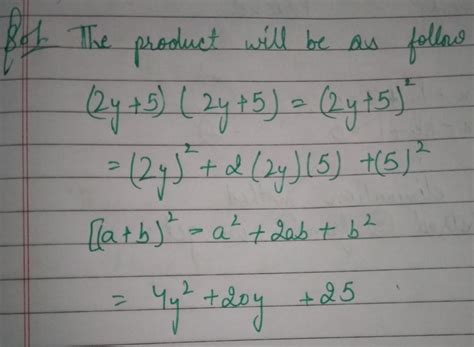 Sol. The product will be as follow
(2y+5) (2y+5) = (2y+5)²
= (2y)² + 2(2y)(5) + (5)²
[(a+b)² = a² + 2ab + b²
= 4y² + 20y + 25